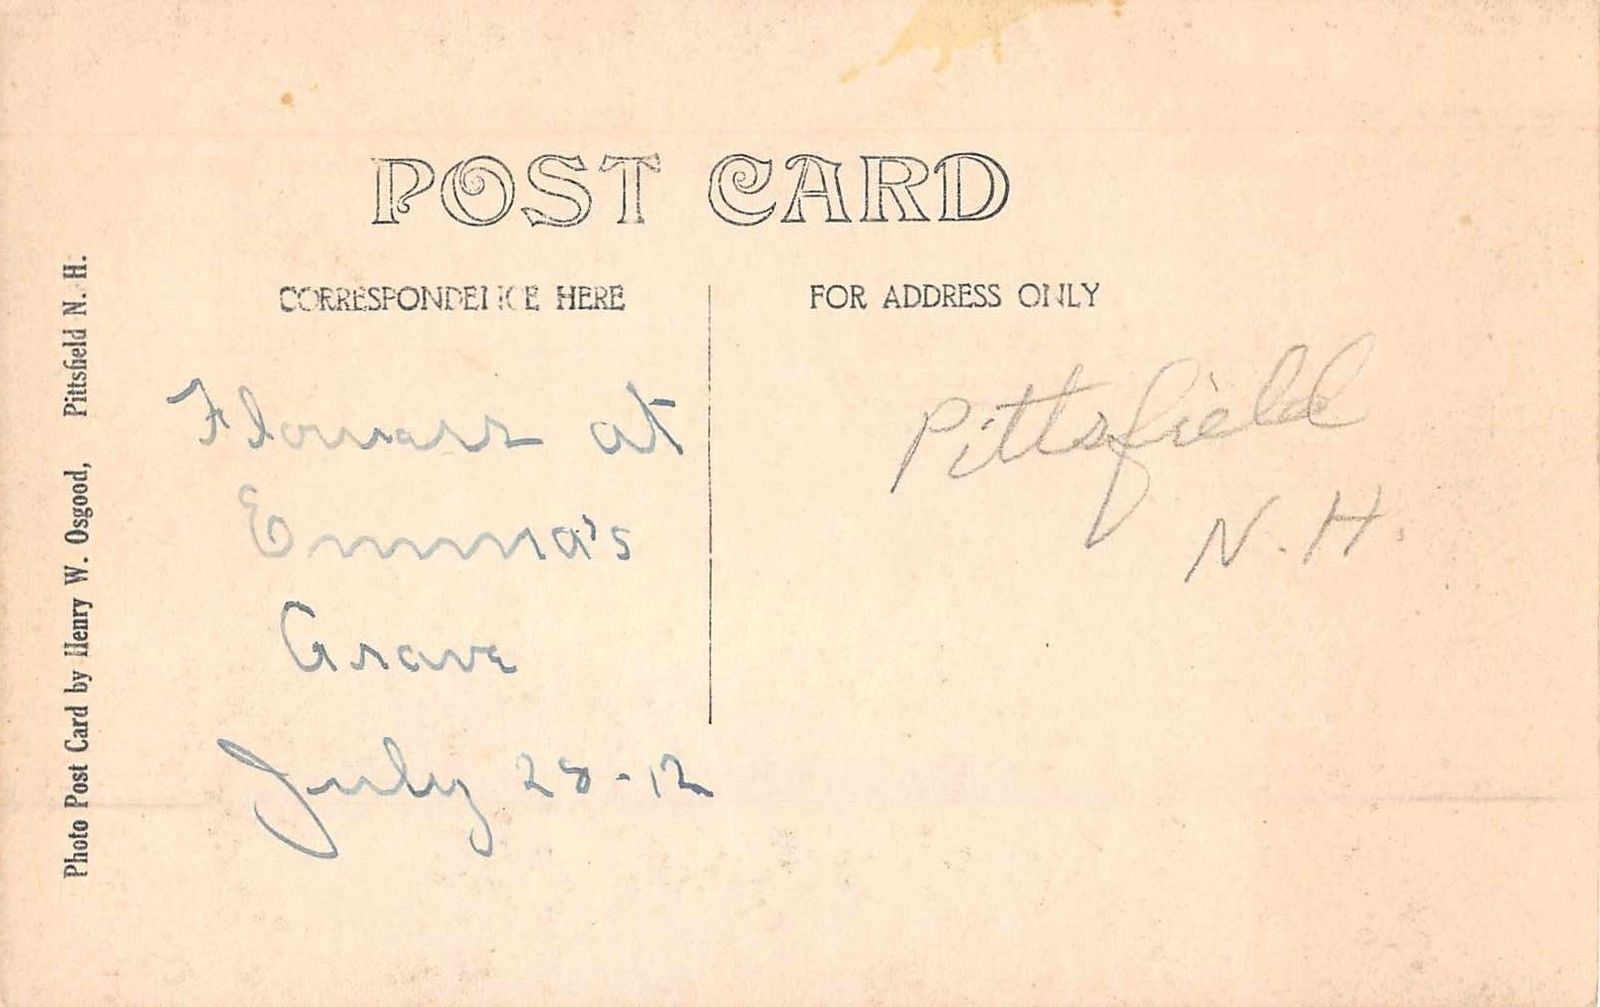 POST CARD
CORRESPONDENCE HERE
FOR ADDRESS ONLY
Photo Post Card by Henry W. Osgood, Pittsfield N. H.
Flowers at
Emma's
Grave
July 28-12
Pittsfield
N. H.